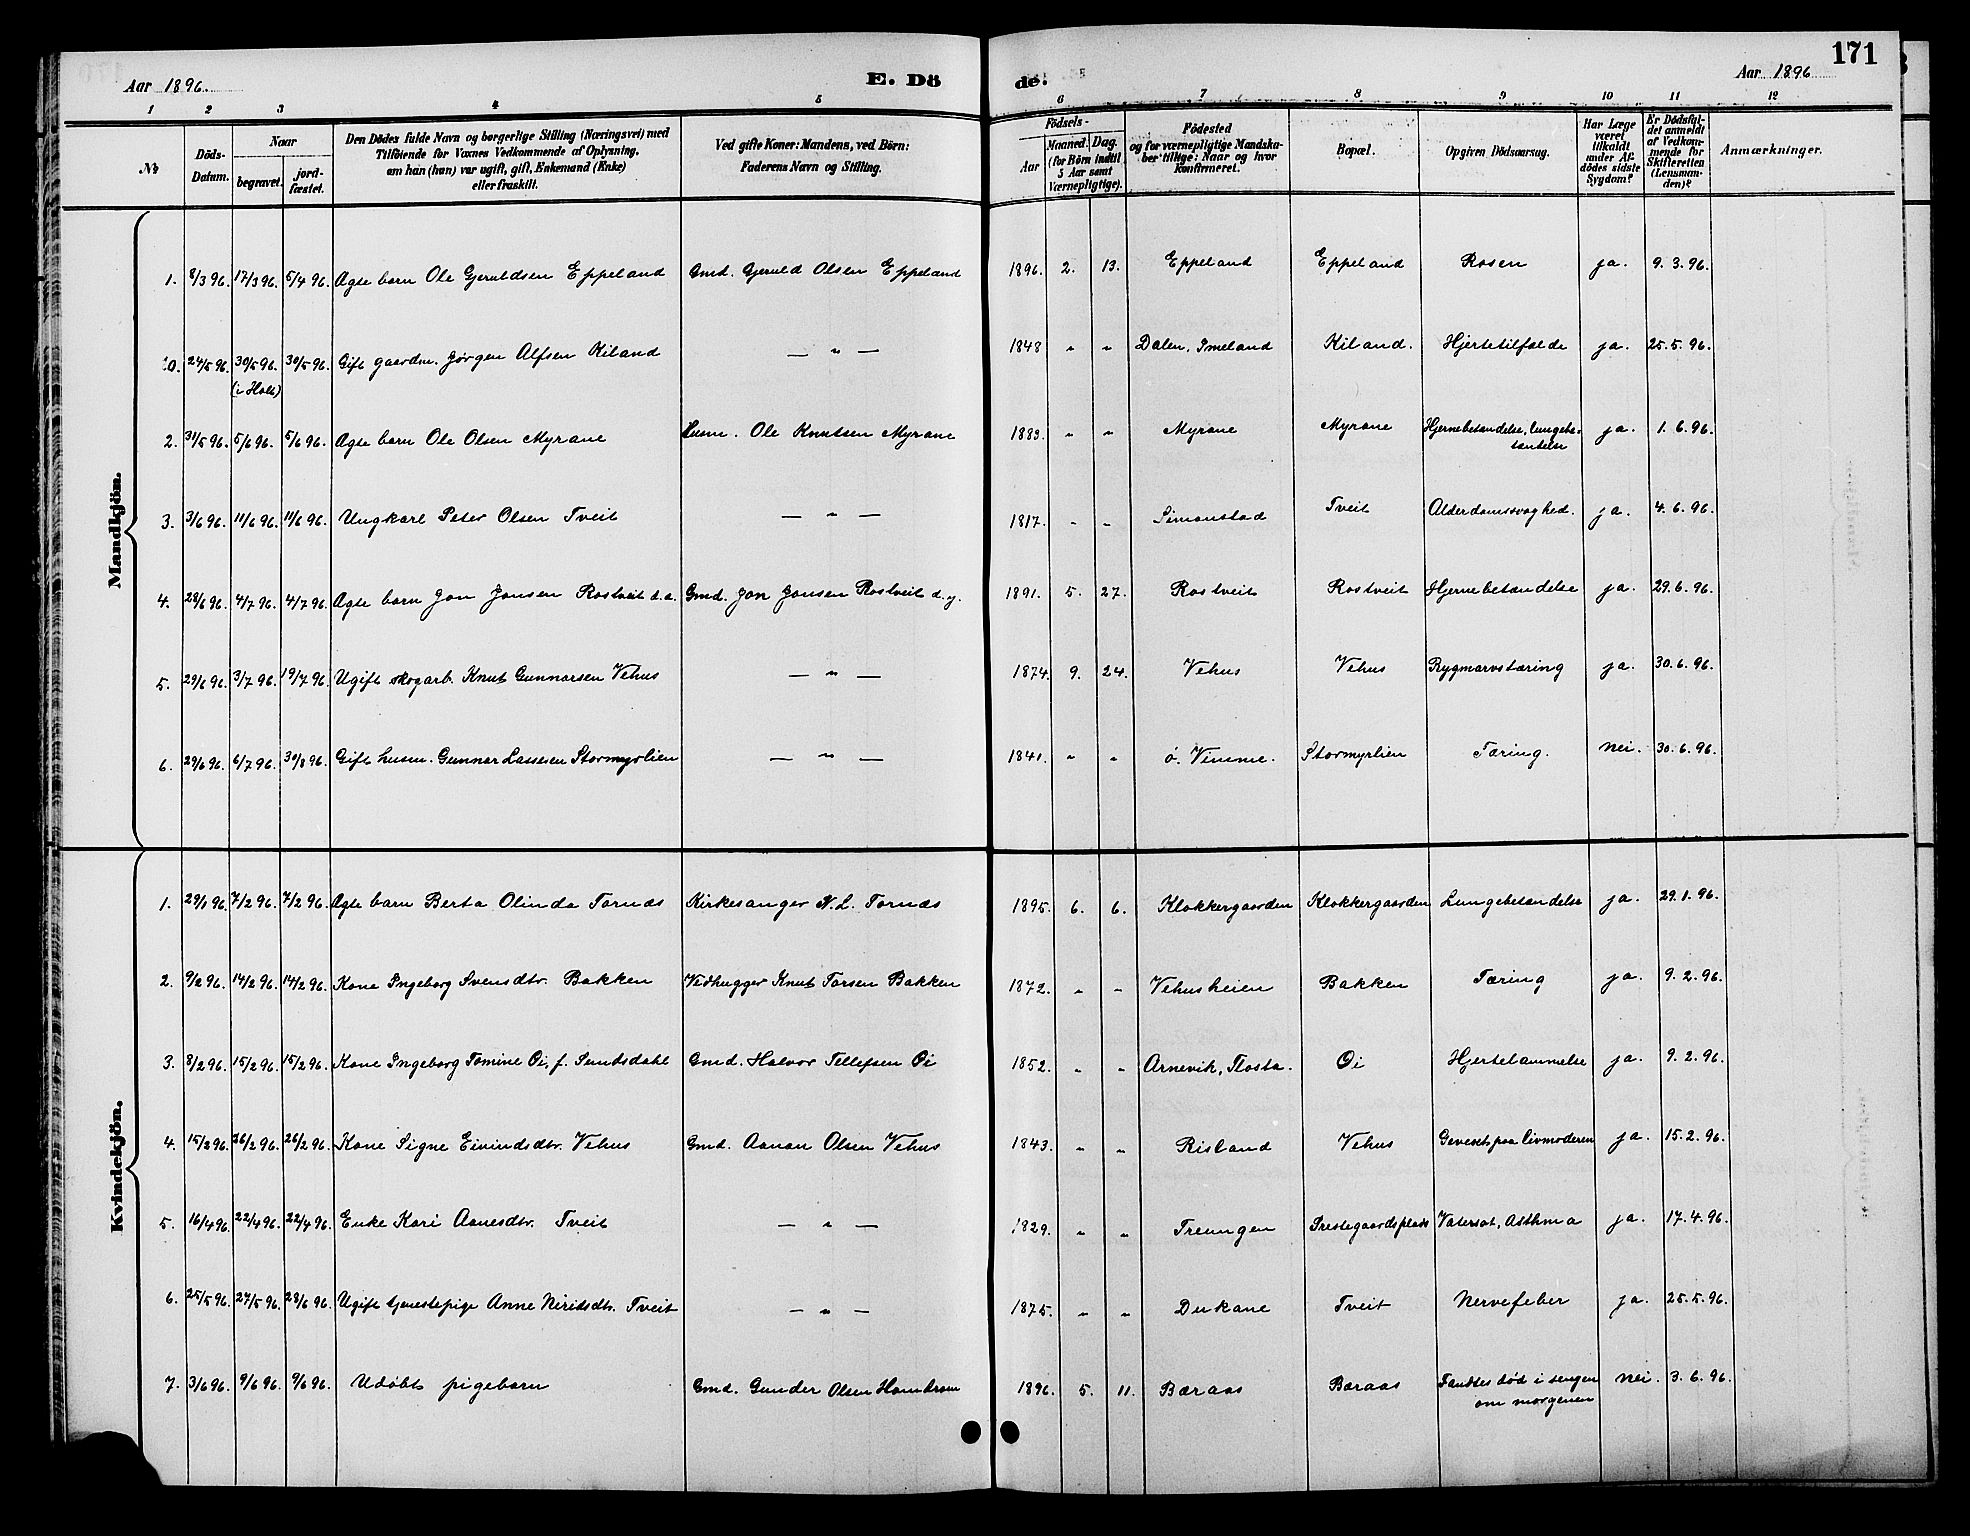 171
Aar 1896. E. Dö de. Aar 1896
1 2 3 4 5 6 7 8 9 10 11 12
No
Döds-Datum.
Naar
begravet.
jord-fæstet.
Den Dödes fulde Navn og borgerlige Stilling (Næringsvei) med
Tilföiende for Voxnes Vedkommende af Oplysning,
om han (hun) var ugift, gift, Enkemand (Enke)
eller fraskilt.
Ved gifte Koner: Mandens, ved Börn:
Faderens Navn og Stilling.
Födsels-
Aar
Maaned. Dag.
(for Börn indtil
5 Aar samt
Værnepligtige).
Födested
og for værnepligtige Mandska-
ber tillige: Naar og hvor
konfirmeret.
Bopæl.
Opgiven Dödsaarsag.
Har Læge
været
tilkaldt
under Af-
dödes sidste
Sygdom?
Er Dödsfal-
det anmeldt
af Vedkom-
mende for
Skifteretten
(Lensman-
den)?
Anmærkninger.
Mandkjön.
1. 8/3 96. 17/3 96. 5/4 96. Ægte barn Ole Gjeruldsen Eppeland Gmd. Gjeruld Olsen Eppeland 1896. 2. 13. Eppeland Eppeland Rosen ja. 9. 3. 96.
10. 24/5 96. 30/5 96. 30/5 96. Gift gaardm. Jørgen Alfsen Kiland — " — 1848 " " Dalen, Imeland Kiland. Hjertetilfælde ja. 25. 5. 96.
(i Holt)
2. 31/5 96. 5/6 96. 5/6 96. Ægte barn Ole Olsen Myrane Husm. Ole Knutsen Myrane 1883. " " Myrane Myrane Hjernebetændelse, lungebe- ja. 1. 6. 96.
tændelse
3. 3/6 96. 11/6 96. 11/6 96. Ungkarl Peter Olsen Tveit — " — 1817. " " Simonstad Tveit Alderdomssvaghed. ja. 4. 6. 96.
4. 28/6 96. 4/7 96. 4/7 96. Ægte barn Jon Jonsen Rostveit d.a. Gmd. Jon Jonsen Rostveit d. y. 1891. 5. 27. Rostveit Rostveit Hjernebetændelse ja. 29. 6. 96.
5. 29/6 96. 3/7 96. 19/7 96. Ugift skogarb. Knut Gunnarsen Vehus — " — 1874. 9. 24. Vehus Vehus Rygmarvstæring ja. 30. 6. 96.
6. 29/6 96. 6/7 96. 30/8 96. Gift husm. Gunnar Lassesen Stormyrlien — " — 1841. " " ø. Vimme. Stormyrlien Tæring. nei. 30. 6. 96.
Kvindekjön.
1. 29/1 96. 7/2 96. 7/2 96. Ægte barn Berta Olinda Tornæs Kirkesanger N. L. Tornæs 1895. 6. 6. Klokkergaarden Klokkergaarden Lungebetændelse ja. 29. 1. 96.
2. 9/2 96. 14/2 96. 14/2 96. Kone Ingeborg Svensdtr. Bakken Vedhugger Knut Torsen Bakken 1872. " " Vehusheien Bakken Tæring ja. 9. 2. 96.
3. 8/2 96. 15/2 96. 15/2 96. Kone Ingeborg Tomine Øi, f. Sundsdahl Gmd. Halvor Tellefsen Øi 1852. " " Arnevik, Flosta. Øi Hjertelammelse ja. 9. 2. 96.
4. 15/2 96. 26/2 96. 26/2 96. Kone Signe Eivindsdtr. Vehus Gmd. Aanan Olsen Vehus 1843. " " Risland Vehus Gevekst paa livmoderen ja. 15. 2. 96.
5. 16/4 96. 22/4 96. 22/4 96. Enke Kari Aanesdtr. Tveit — " — 1829. " " Treungen Prestegaardsplads Vatersot, Asthma ja. 17. 4. 96.
6. 25/5 96. 27/5 96. 28/6 96. Ugift tjenestepige Anne Neridsdtr. Tveit — " — 1875. " " Tveit Nervefeber ja. 25. 5. 96.
7. 3/6 96. 9/6 96. 9/6 96. Udøbt pigebarn Gmd. Gunder Olsen 1896. 5. 11. Baraas Baraas Fandtes død i sengen nei. 3. 6. 96.
om morgenen